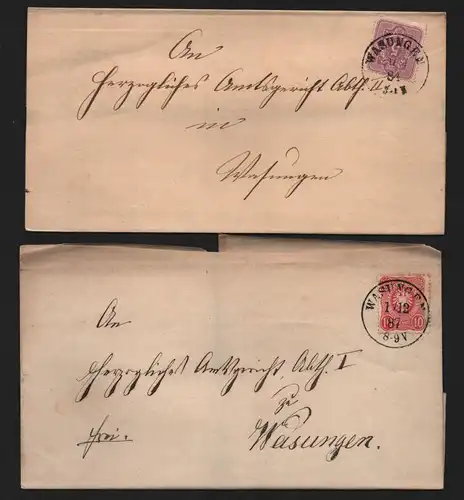 An
Herzogliches Amtsgericht Abth. II
in
Wasungen
WASUNGEN
84
WASUNGEN
1 12
87
8-9V
10
An
Herzogliches Amtsgericht Abth. I
zu
frei.
Wasungen.